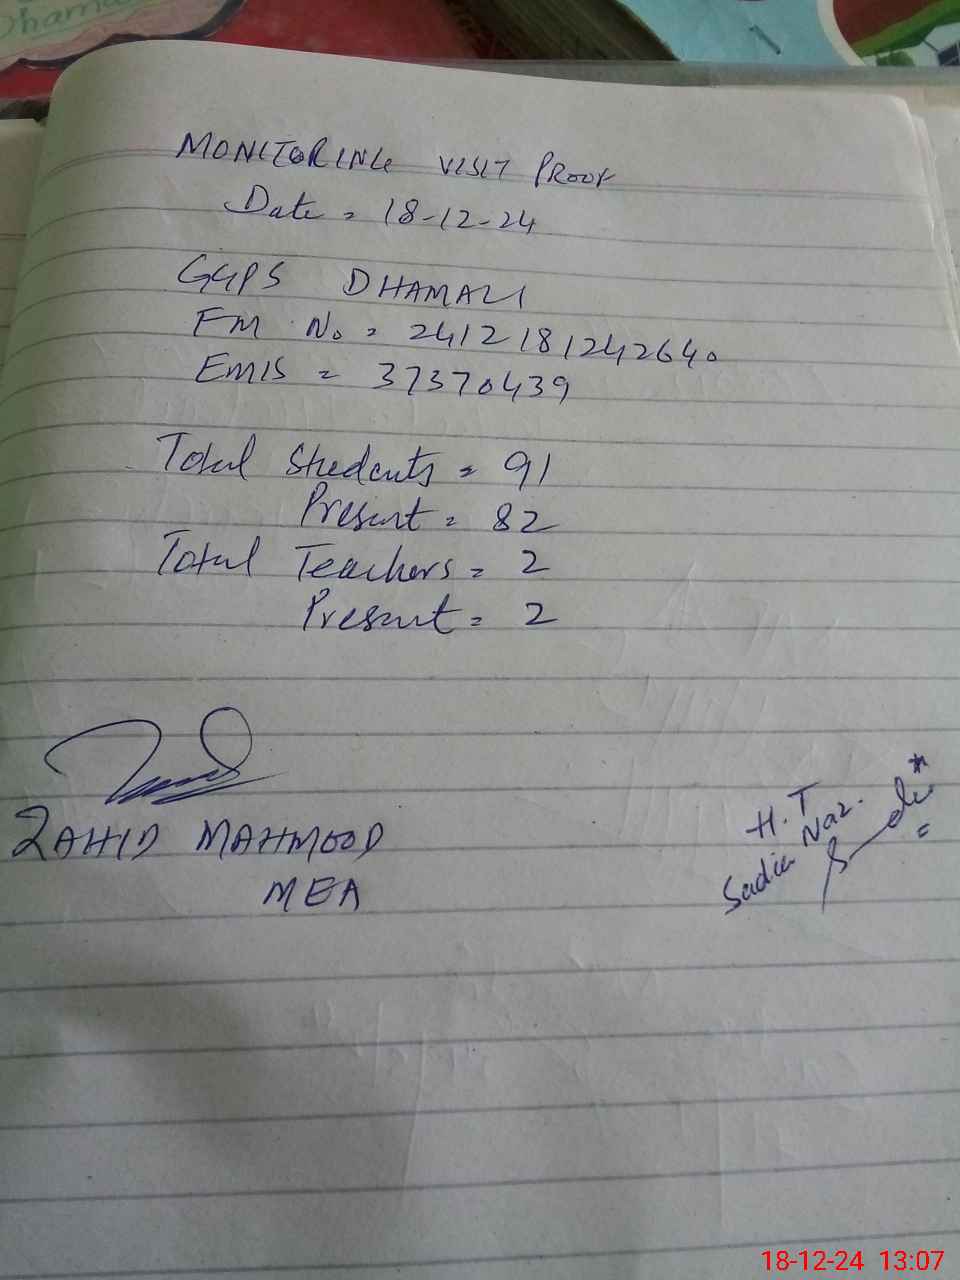 Dhamali
MONITORING VISIT PROOF
Date = 18-12-24
GGPS DHAMALI
FM No = 2412181242640
EMIS = 37370439
Total Students = 91
Present = 82
Total Teachers = 2
Present = 2
ZAHID MAHMOOD
MEA
H.T
Sadia Naz.
18-12-24 13:07